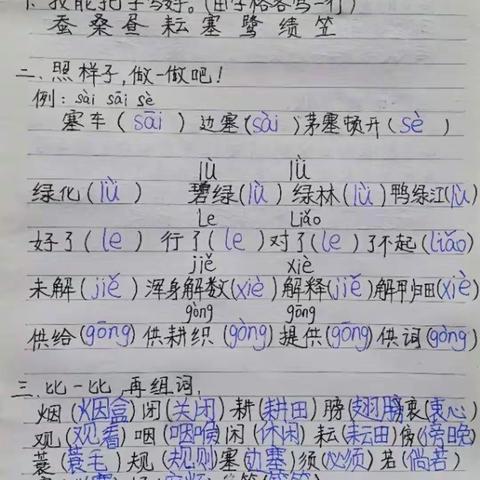 1、我能把字写好。(田字格各写一行)
蚕 桑 昼 耘 塞 鹭 绩 笠
二、照样子,做一做吧!
例: sài sāi sè
塞车( sāi ) 边塞(sài)茅塞顿开(sè )
lǜ lù
绿化( lǜ ) 碧绿(lǜ)绿林(lǜ)鸭绿江(lù)
Le Liǎo
好了(le) 行了(le)对了(le)了不起(liǎo)
jiě xiè
未解(jiě)浑身解数(xiè)解释(jiě)解甲归田(xiè)
gòng gōng
供给(gōng)供耕织(gòng)提供(gōng)供词(gòng)
三、比一比,再组词。
烟(烟盒)闭(关闭)耕(耕田)膀(翅膀)衷(衷心)
观(观看)咽(咽喉)闲(休闲)耘(耘田)傍(傍晚)
蓑(蓑毛)规(规则)塞(边塞)须(必须)若(倘若)